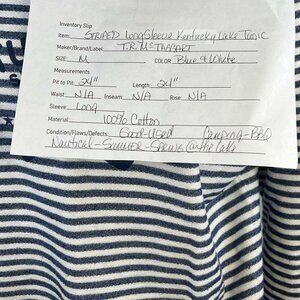 Inventory Slip
Item: STRIPED Long Sleeve Kentucky Lake Tunic
Maker/Brand/Label: T.R. McTaggart
SIZE: M COLOR: Blue & White
Measurements
Pit to Pit: 24" Length: 24"
Waist: N/A Inseam: N/A Rise: N/A
Sleeve: Long
Material: 100% Cotton
Condition/Flaws/Defects: Good-Used Camping-BBQ
Nautical-Summer-Spring@the lake